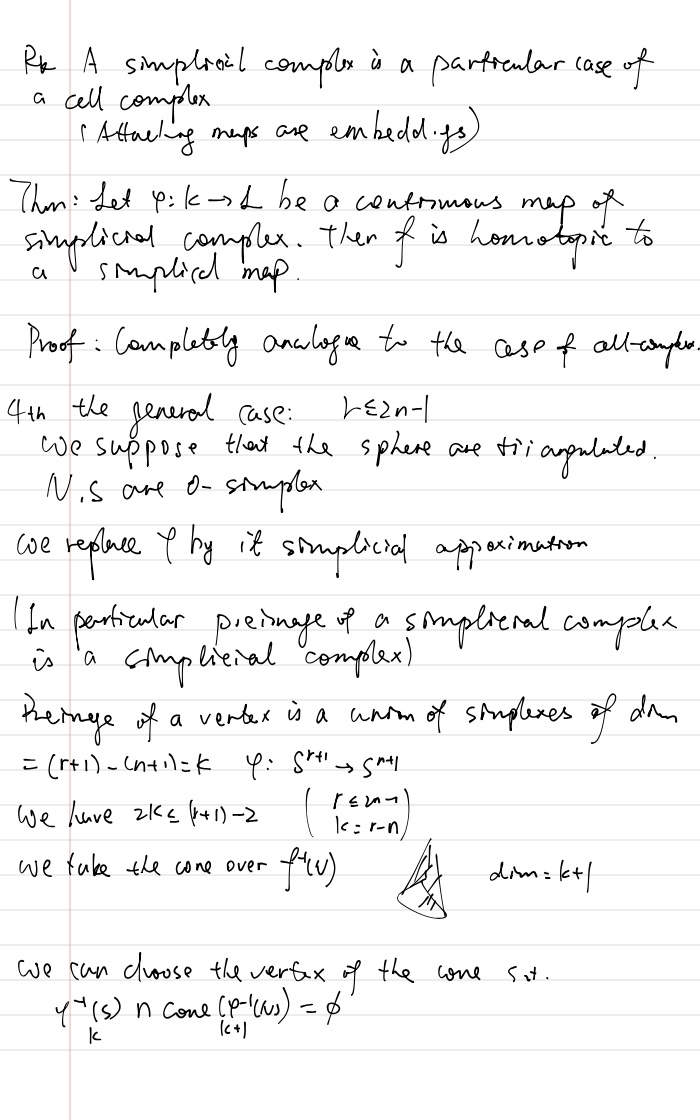 Rk A simplicial complex is a particular case of
a cell complex
(Attaching maps are embeddings)
Thm: Let φ: K → L be a continuous map of
simplicial complex. Then f is homotopic to
a simplicial map.
Proof: Completely analogue to the case of cell-complex.
4th the general case: r ≤ 2n-1
We suppose that the sphere are triangulated.
N,S are 0-simplex
We replace φ by it simplicial approximation
(In particular preimage of a simplicial complex
is a simplicial complex)
Preimage of a vertex is a union of simplexes of dim
= (r+1) - (n+1) = k φ: S^{r+1} → S^{n+1}
We have 2k ≤ (r+1) - 2 (r ≤ 2n-1
k = r-n)
We take the cone over f^{-1}(N) dim = k+1
We can choose the vertex of the cone s.t.
φ^{-1}(S) ∩ cone(φ^{-1}(N)) = ∅
k k+1